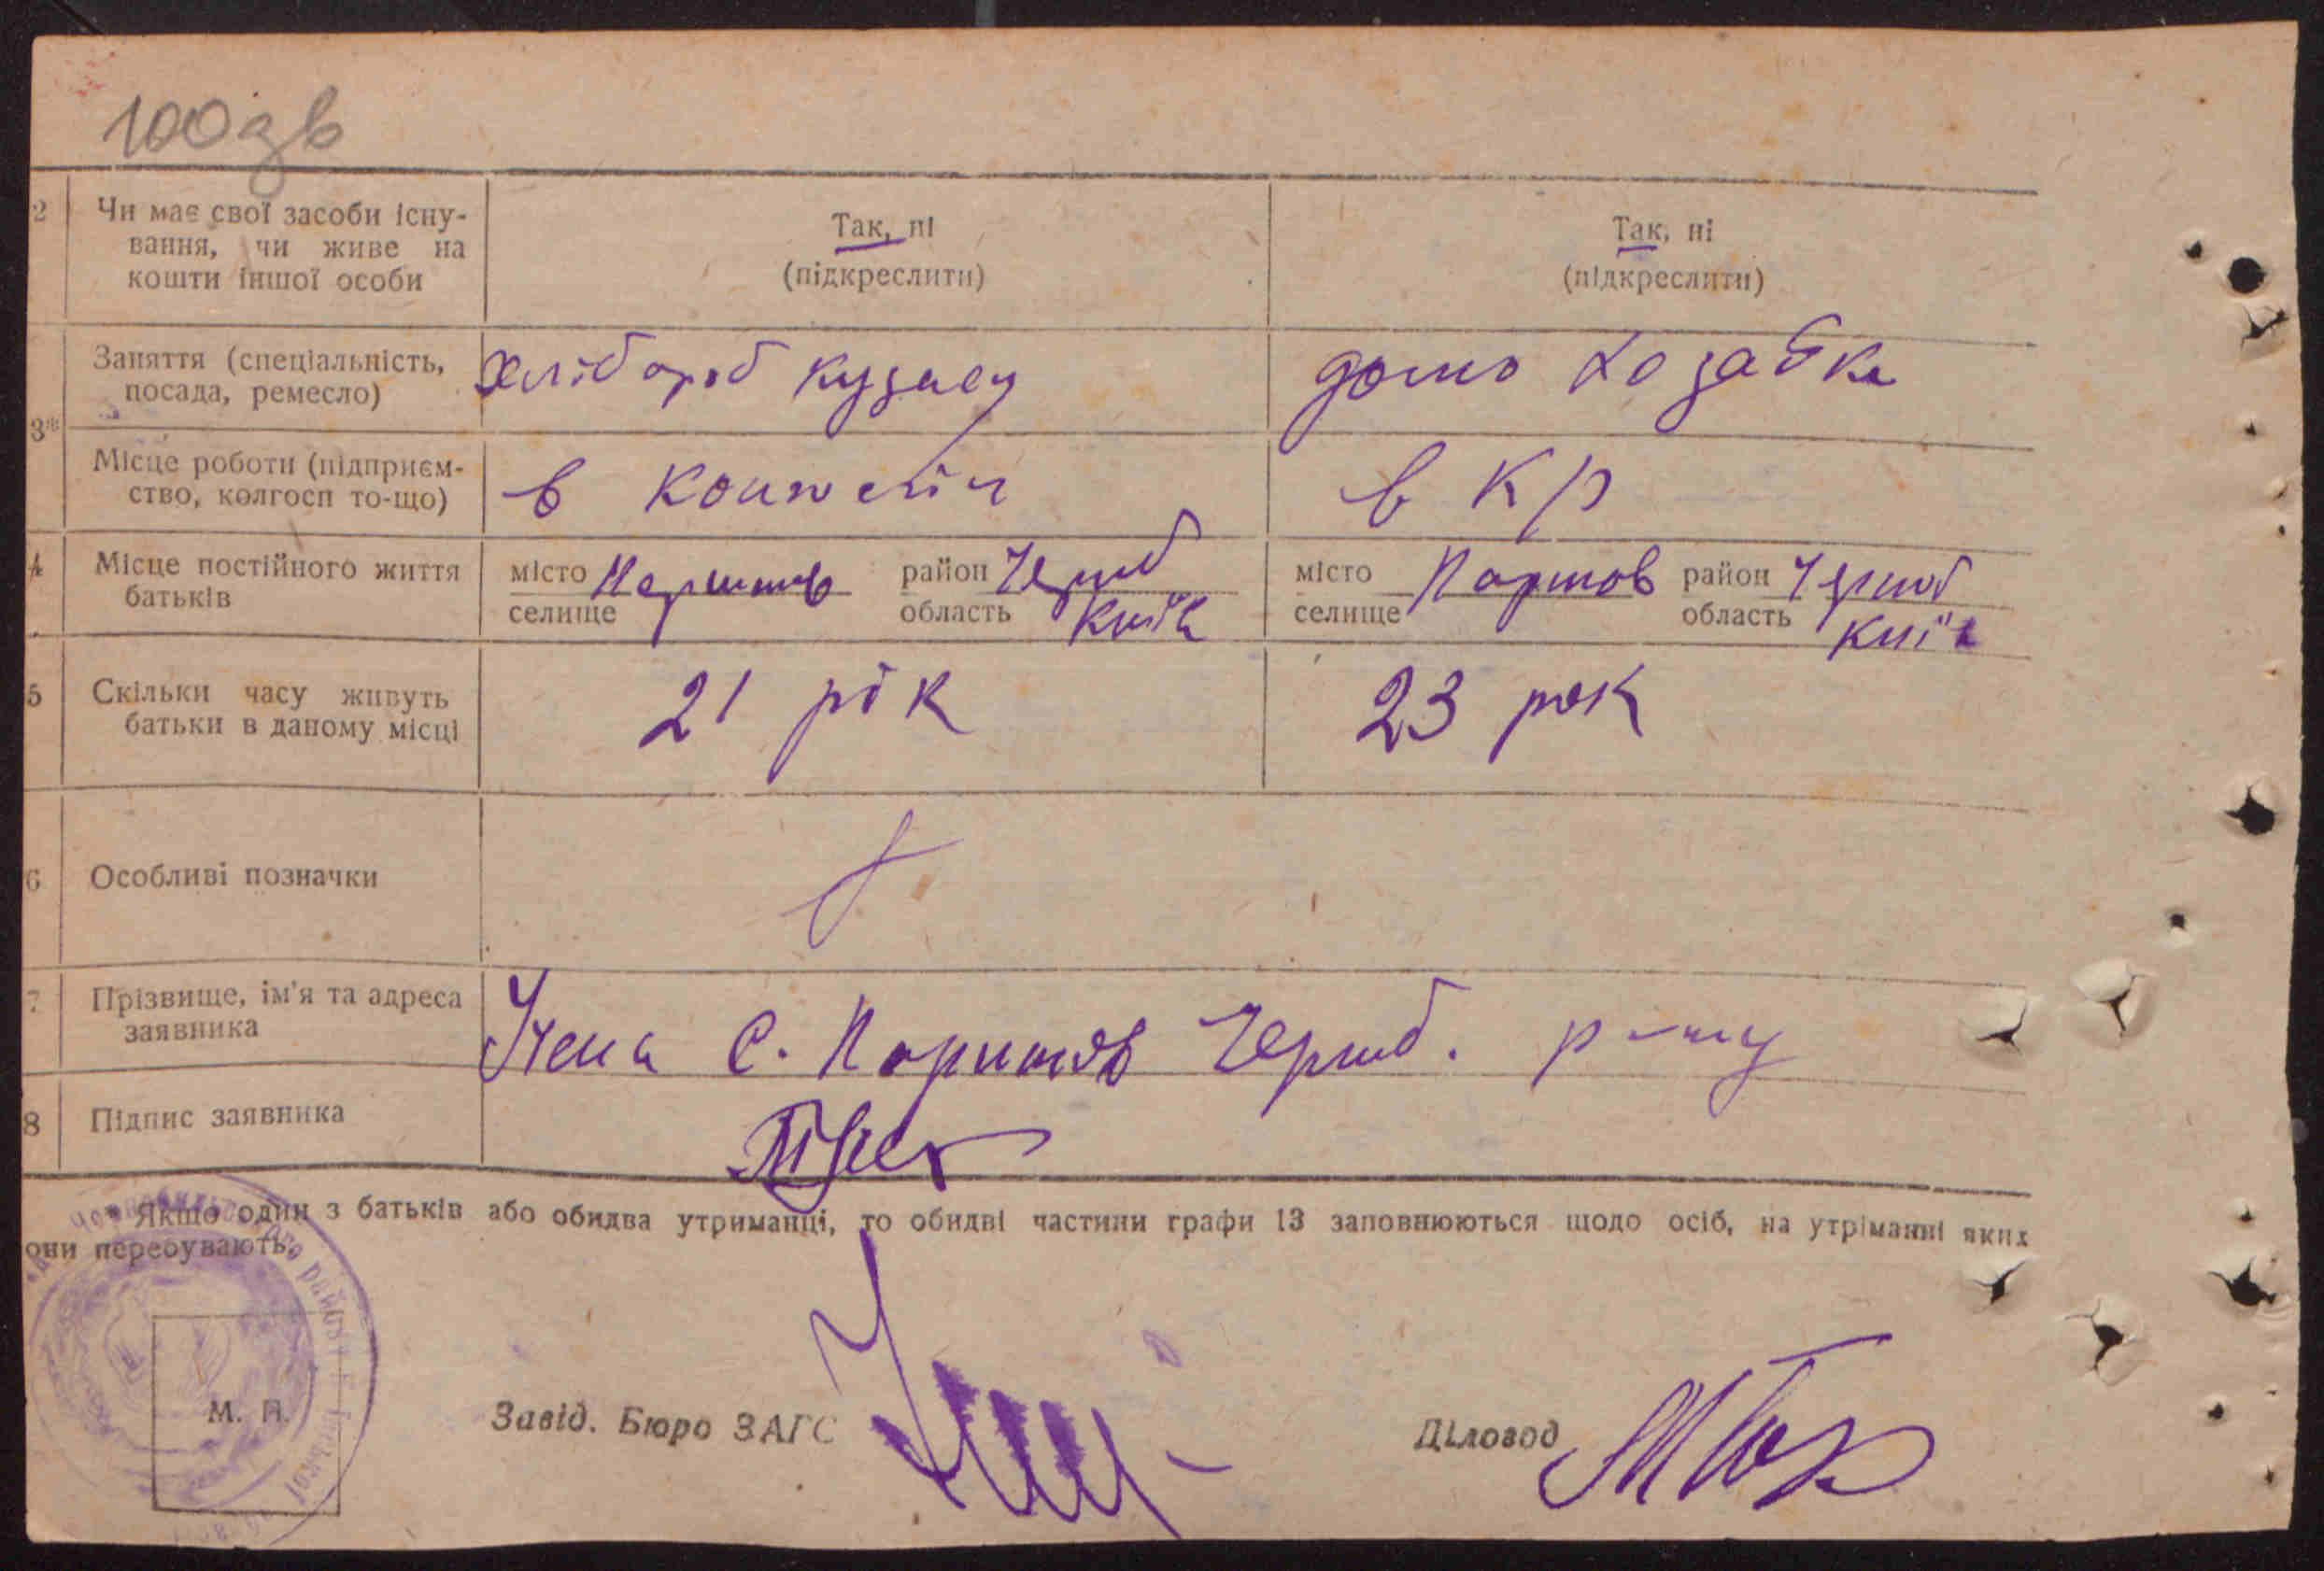 100 зв
2 Чи має свої засоби існу-
вання, чи живе на
кошти іншої особи
Так, ні
(підкреслити)
Так, ні
(підкреслити)
3 Заняття (спеціальність,
посада, ремесло)
хлібороб
домо
Місце роботи (підприєм-
ство, колгосп то-що)
в
в к/р
4 Місце постійного життя
батьків
місто
селище
район Черноб
область Київ
місто
селище
район Черноб
область Київ
5 Скільки часу живуть
батьки в даному місці
21 рік
23 рок
6 Особливі позначки
7 Прізвище, ім'я та адреса
заявника
с. Черноб. р-ну
8 Підпис заявника
Якщо один з батьків або обидва утриманці, то обидві частини графи 13 заповнюються щодо осіб, на утріманні яких
они перебувають.
М. П.
Завід. Бюро ЗАГС
Діловод